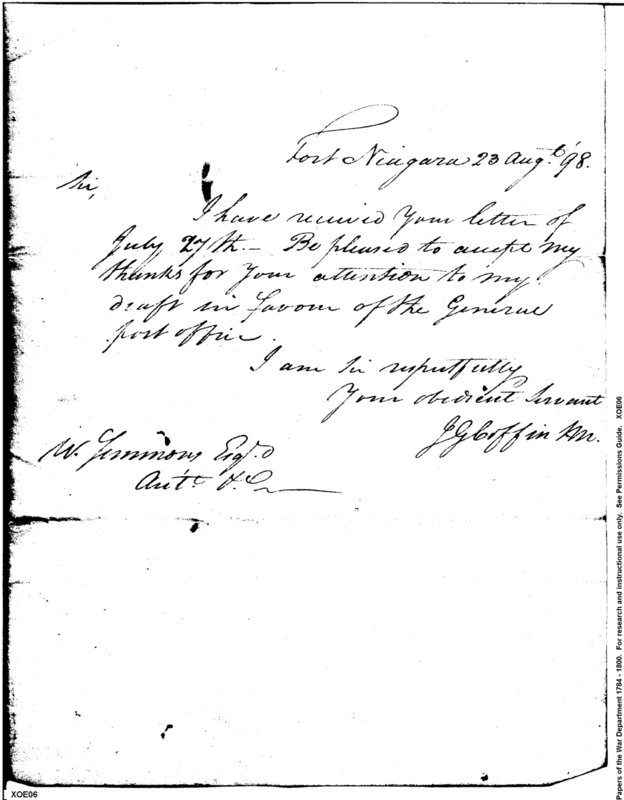 Fort Niagara 23 Augt. '98.
Sir,
I have received Your letter of
July 27th. – Be pleased to accept my
thanks for Your attention to my
draft in favour of the General
post office.
I am Sir respectfully
Your obedient Servant
J G Coffin
W. Simmons Esqr.
Acct. &c
Papers of the War Department 1784 - 1800. For research and instructional use only. See Permissions Guide. XOE06
XOE06